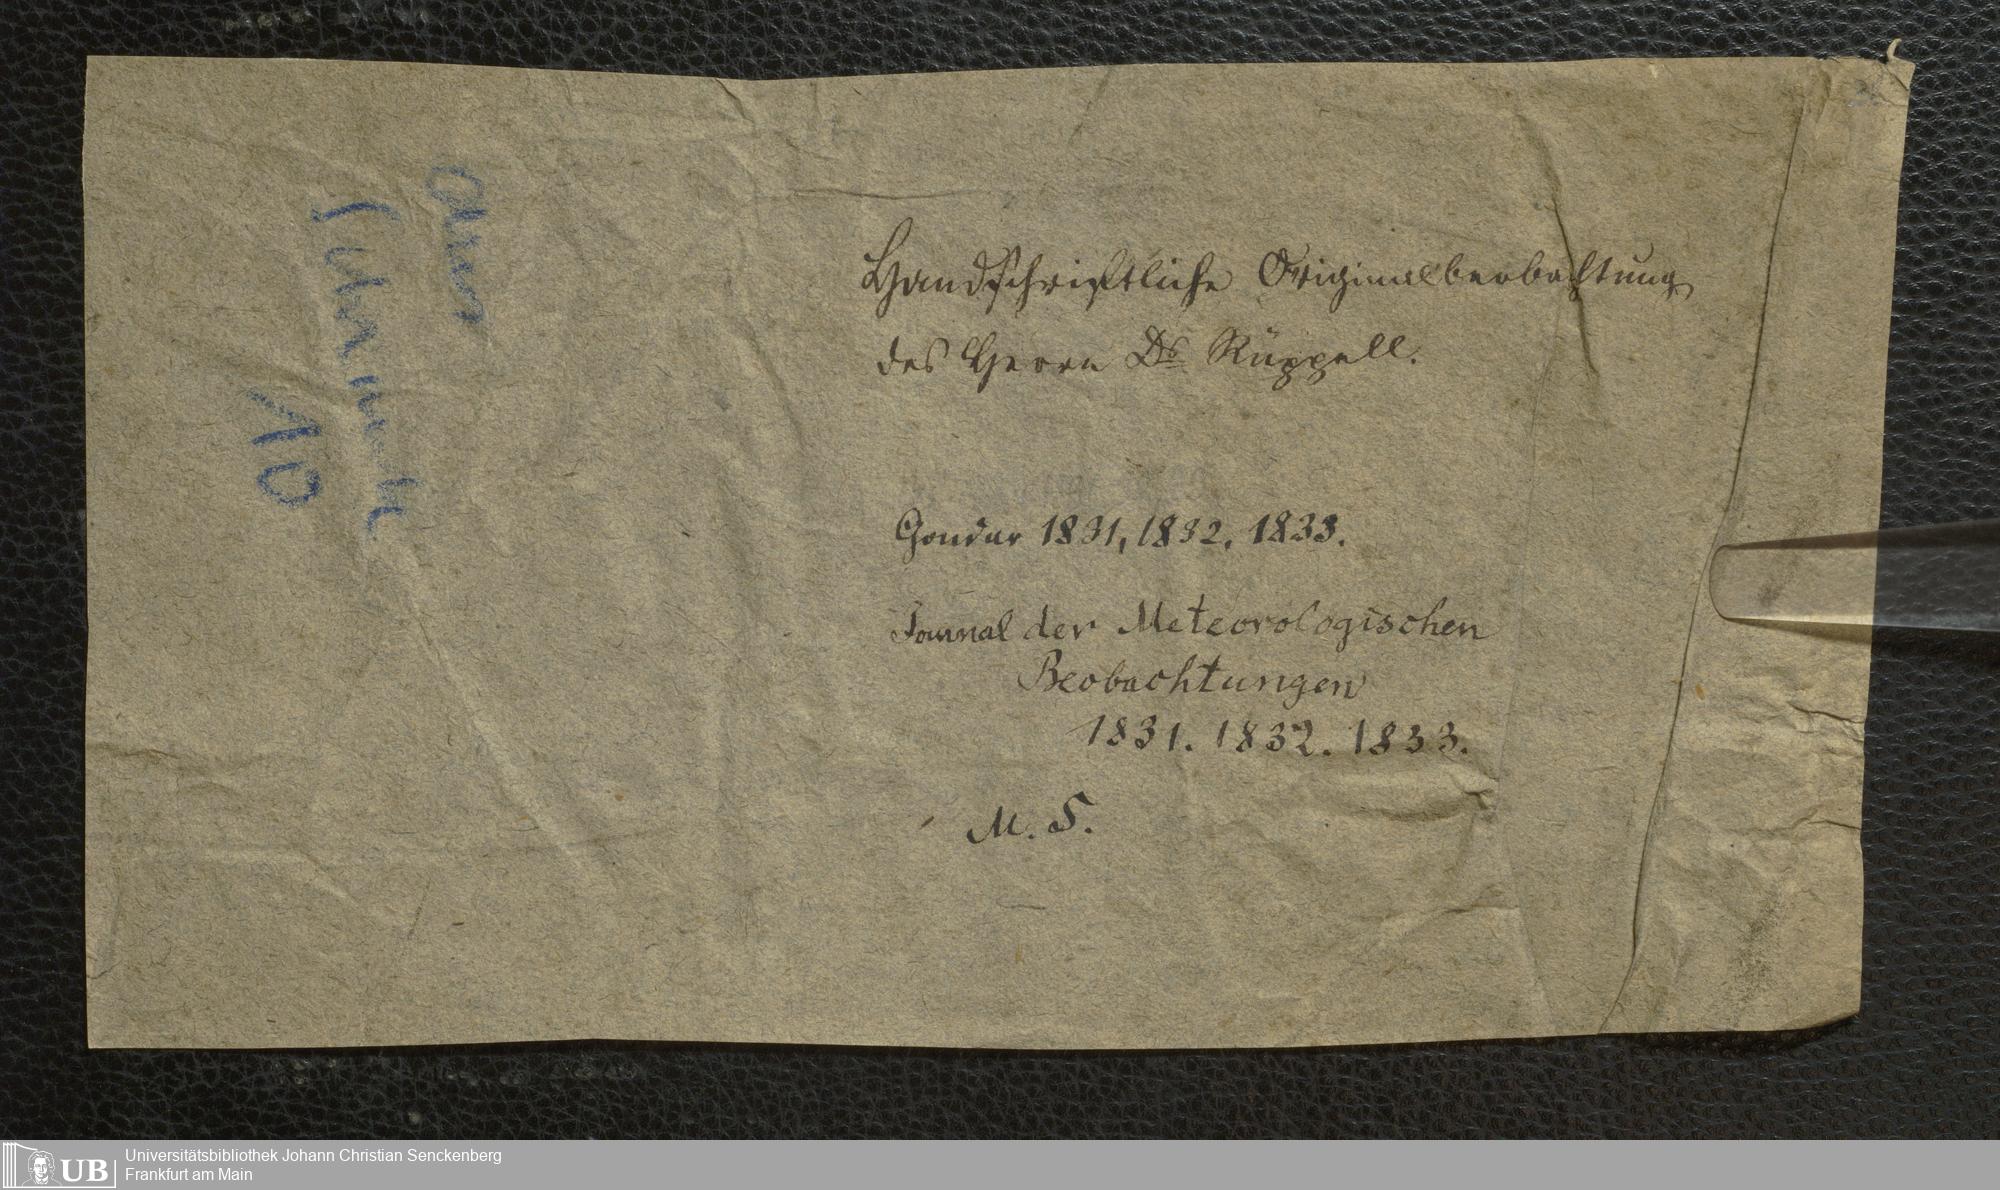 Handschriftliche Originalbeobachtung
des Herrn Dr. Rüppell.
Gondar 1831, 1832, 1833.
Journal der Meteorologischen
Beobachtungen
1831. 1832. 1833.
M. S.
Aus
Schrank
10
UB
Universitätsbibliothek Johann Christian Senckenberg
Frankfurt am Main